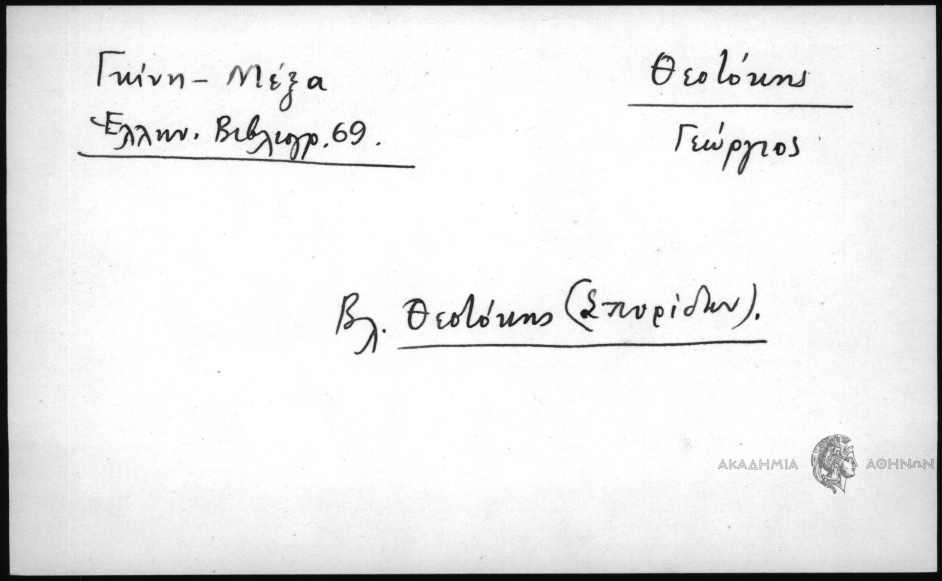 Γκίνη - Μέξα
Ἑλλην. Βιβλιογρ. 69.
Θεοτόκης
Γεώργιος
Βλ. Θεοτόκης (Σπυρίδων).
ΑΚΑΔΗΜΙΑ ΑΘΗΝΩΝ